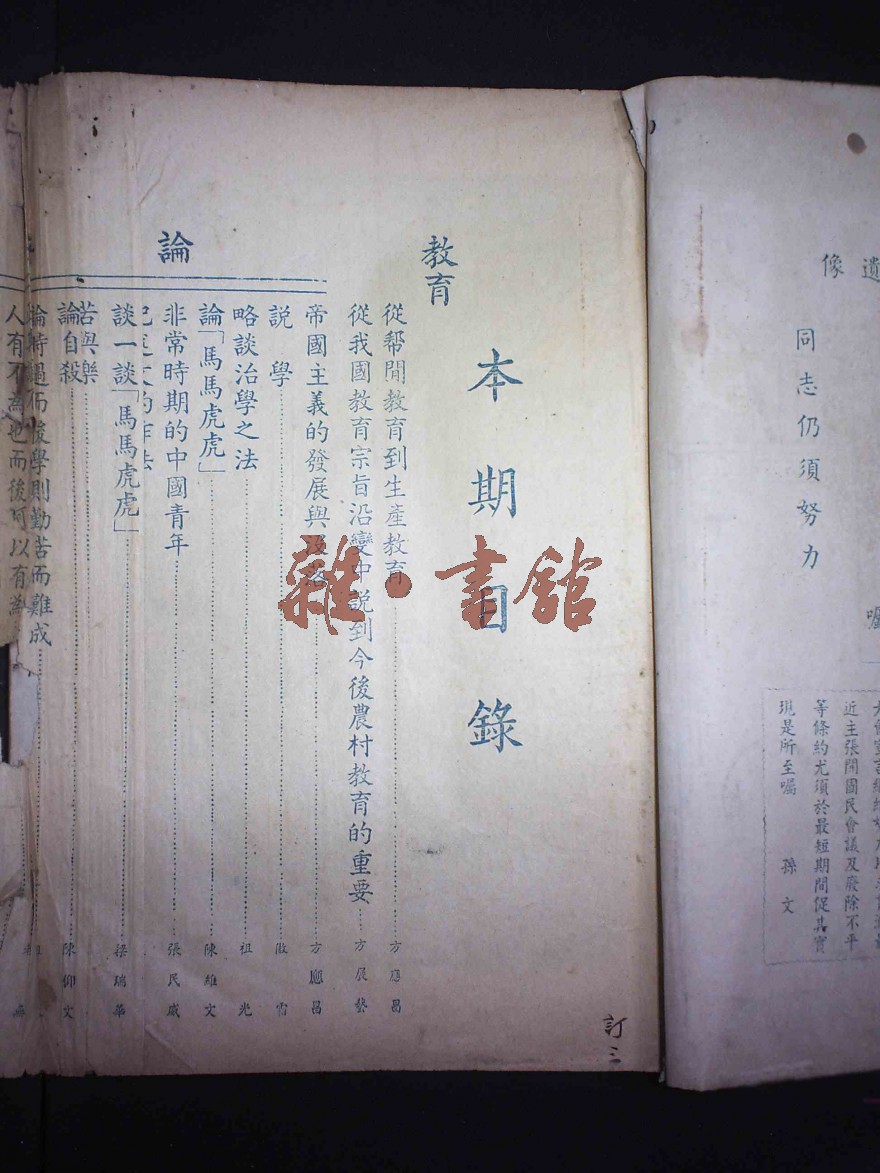 遺像
同志仍須努力
近主張開國民會議及廢除不平
等條約尤須於最短期間促其實
現是所至囑 孫文
本期目錄
教育
從幫閒教育到生產教育 方應昌
從我國教育宗旨沿變中說到今後農村教育的重要 方展藝
論
帝國主義的發展與沒落 方應昌
說學
略談治學之法 祖光
論「馬馬虎虎」 陳維文
非常時期的中國青年 張民威
談一談「馬馬虎虎」 梁瑞華
苦與樂
論自殺 陳仰文
論時過而後學則勤苦而難成
人有不為也而後可以有為
訂三
雜·書館